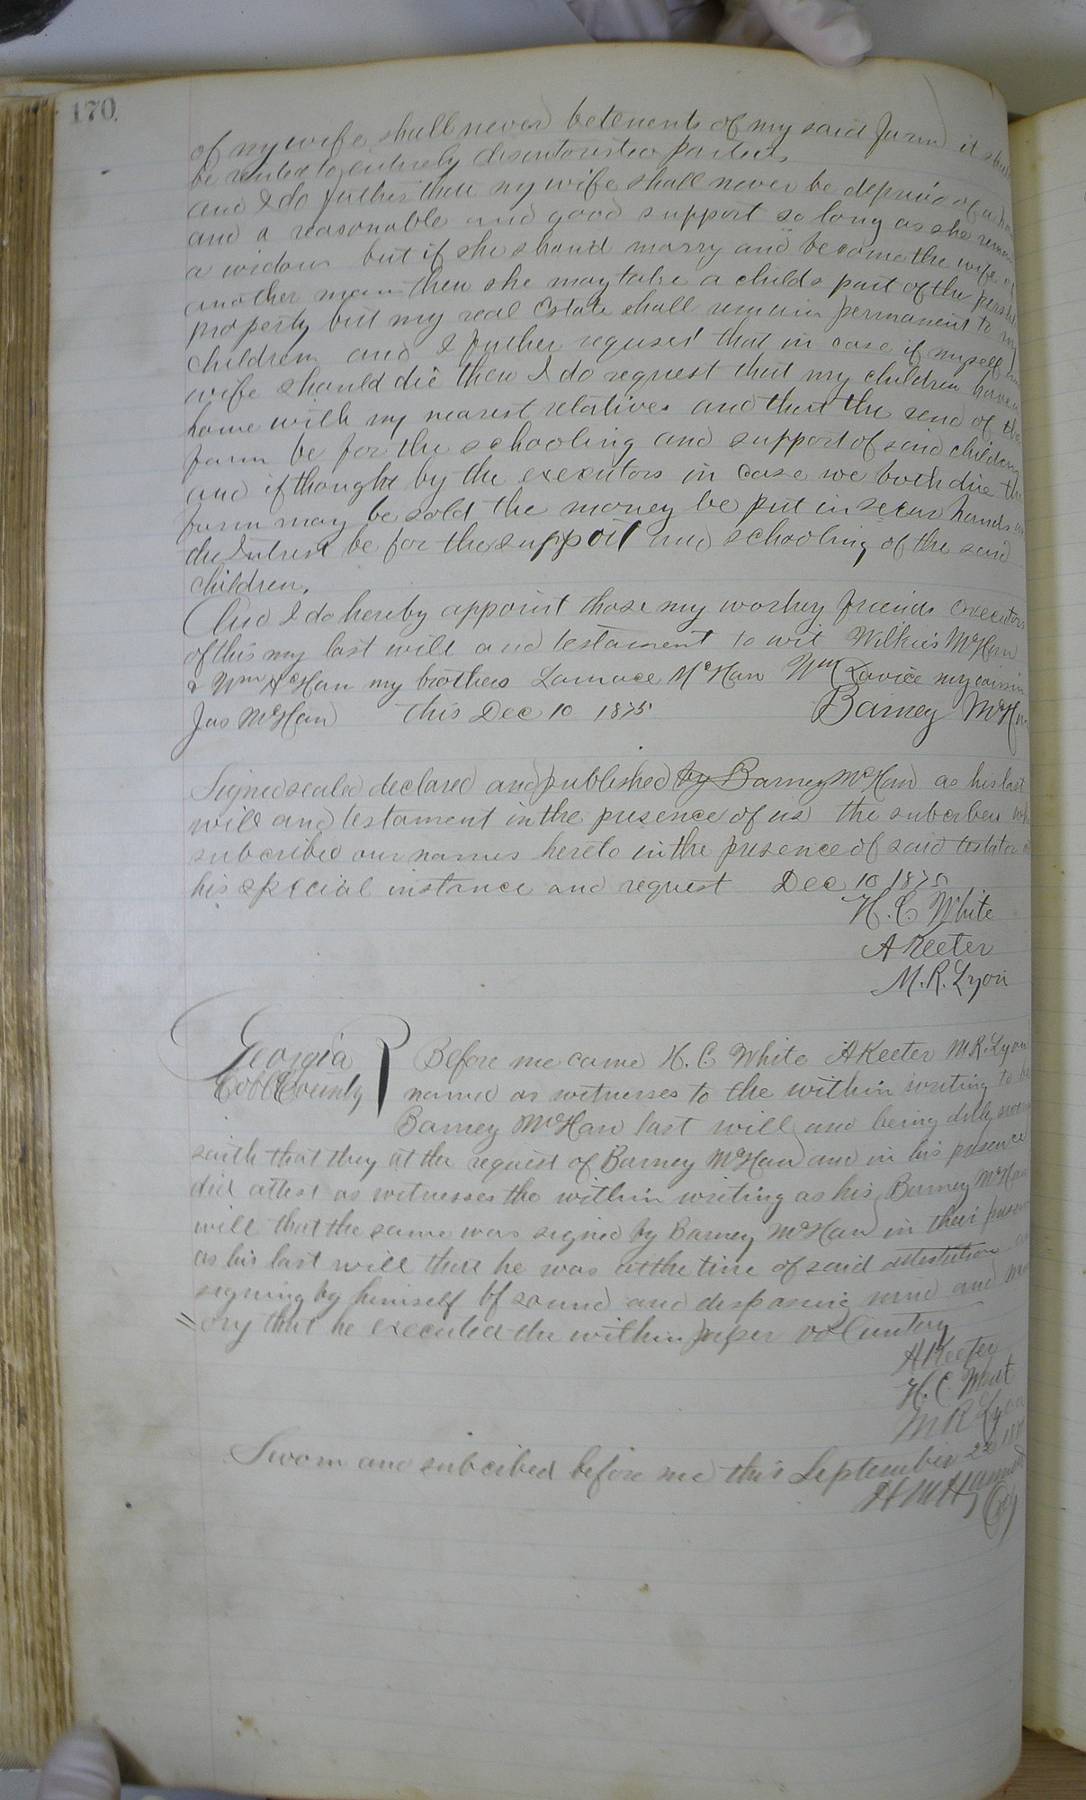 170.
of my wife shall never be tenents of my said farm it shall
be rented to entirely disintorested parties
and I do further that my wife shall never be deprivd of a
and a reasonable and good support so long as she
a widow but if she should marry and become the wife of
another man then she may take a childs part of the
property but my real Estate shall remain permanent to my
children and I further request that in case if myself and
wife should die then I do request that my children have a
home with my nearest relatives and that the rent of the
farm be for the schooling and support of said children
and if thought by the executors in case we both die the
farm may be sold the money be put in secur hands and
the Intrest be for the support and schooling of the said
children.
And I do hereby appoint those my worthy friends executors
of this my last will and testament to wit Wilkis McHan
& Wm McHan my brothers McHan Wm my cousin
Jas McHan this Dec 10 1875 Barney McHan
Signed sealed declared and published by Barney McHan as his last
will and testament in the presence of us the subcribers who
subcribed our names hereto in the presence of said testator at
his special instance and request Dec 10 1875
H. C White
A Keeter
M. R. Lyon
Georgia Before me came H. C White A Keeter M. R. Lyon
Cobb County named as witnesses to the within writing to be
Barney McHan last will and being duly sworn
saith that they at the request of Barney McHan and in his presence
did attest as witnesses the within writing as his Barney McHan
will that the same was signed by Barney McHan in their presence
as his last will that he was at the time of said attestation and
signing by himself of sound and disposing mind and mem
= ory that he executed the within paper voluntary
A Keeter
H. C White
M R Lyon
Sworn and subcibed before me this September 22
H M Ordy